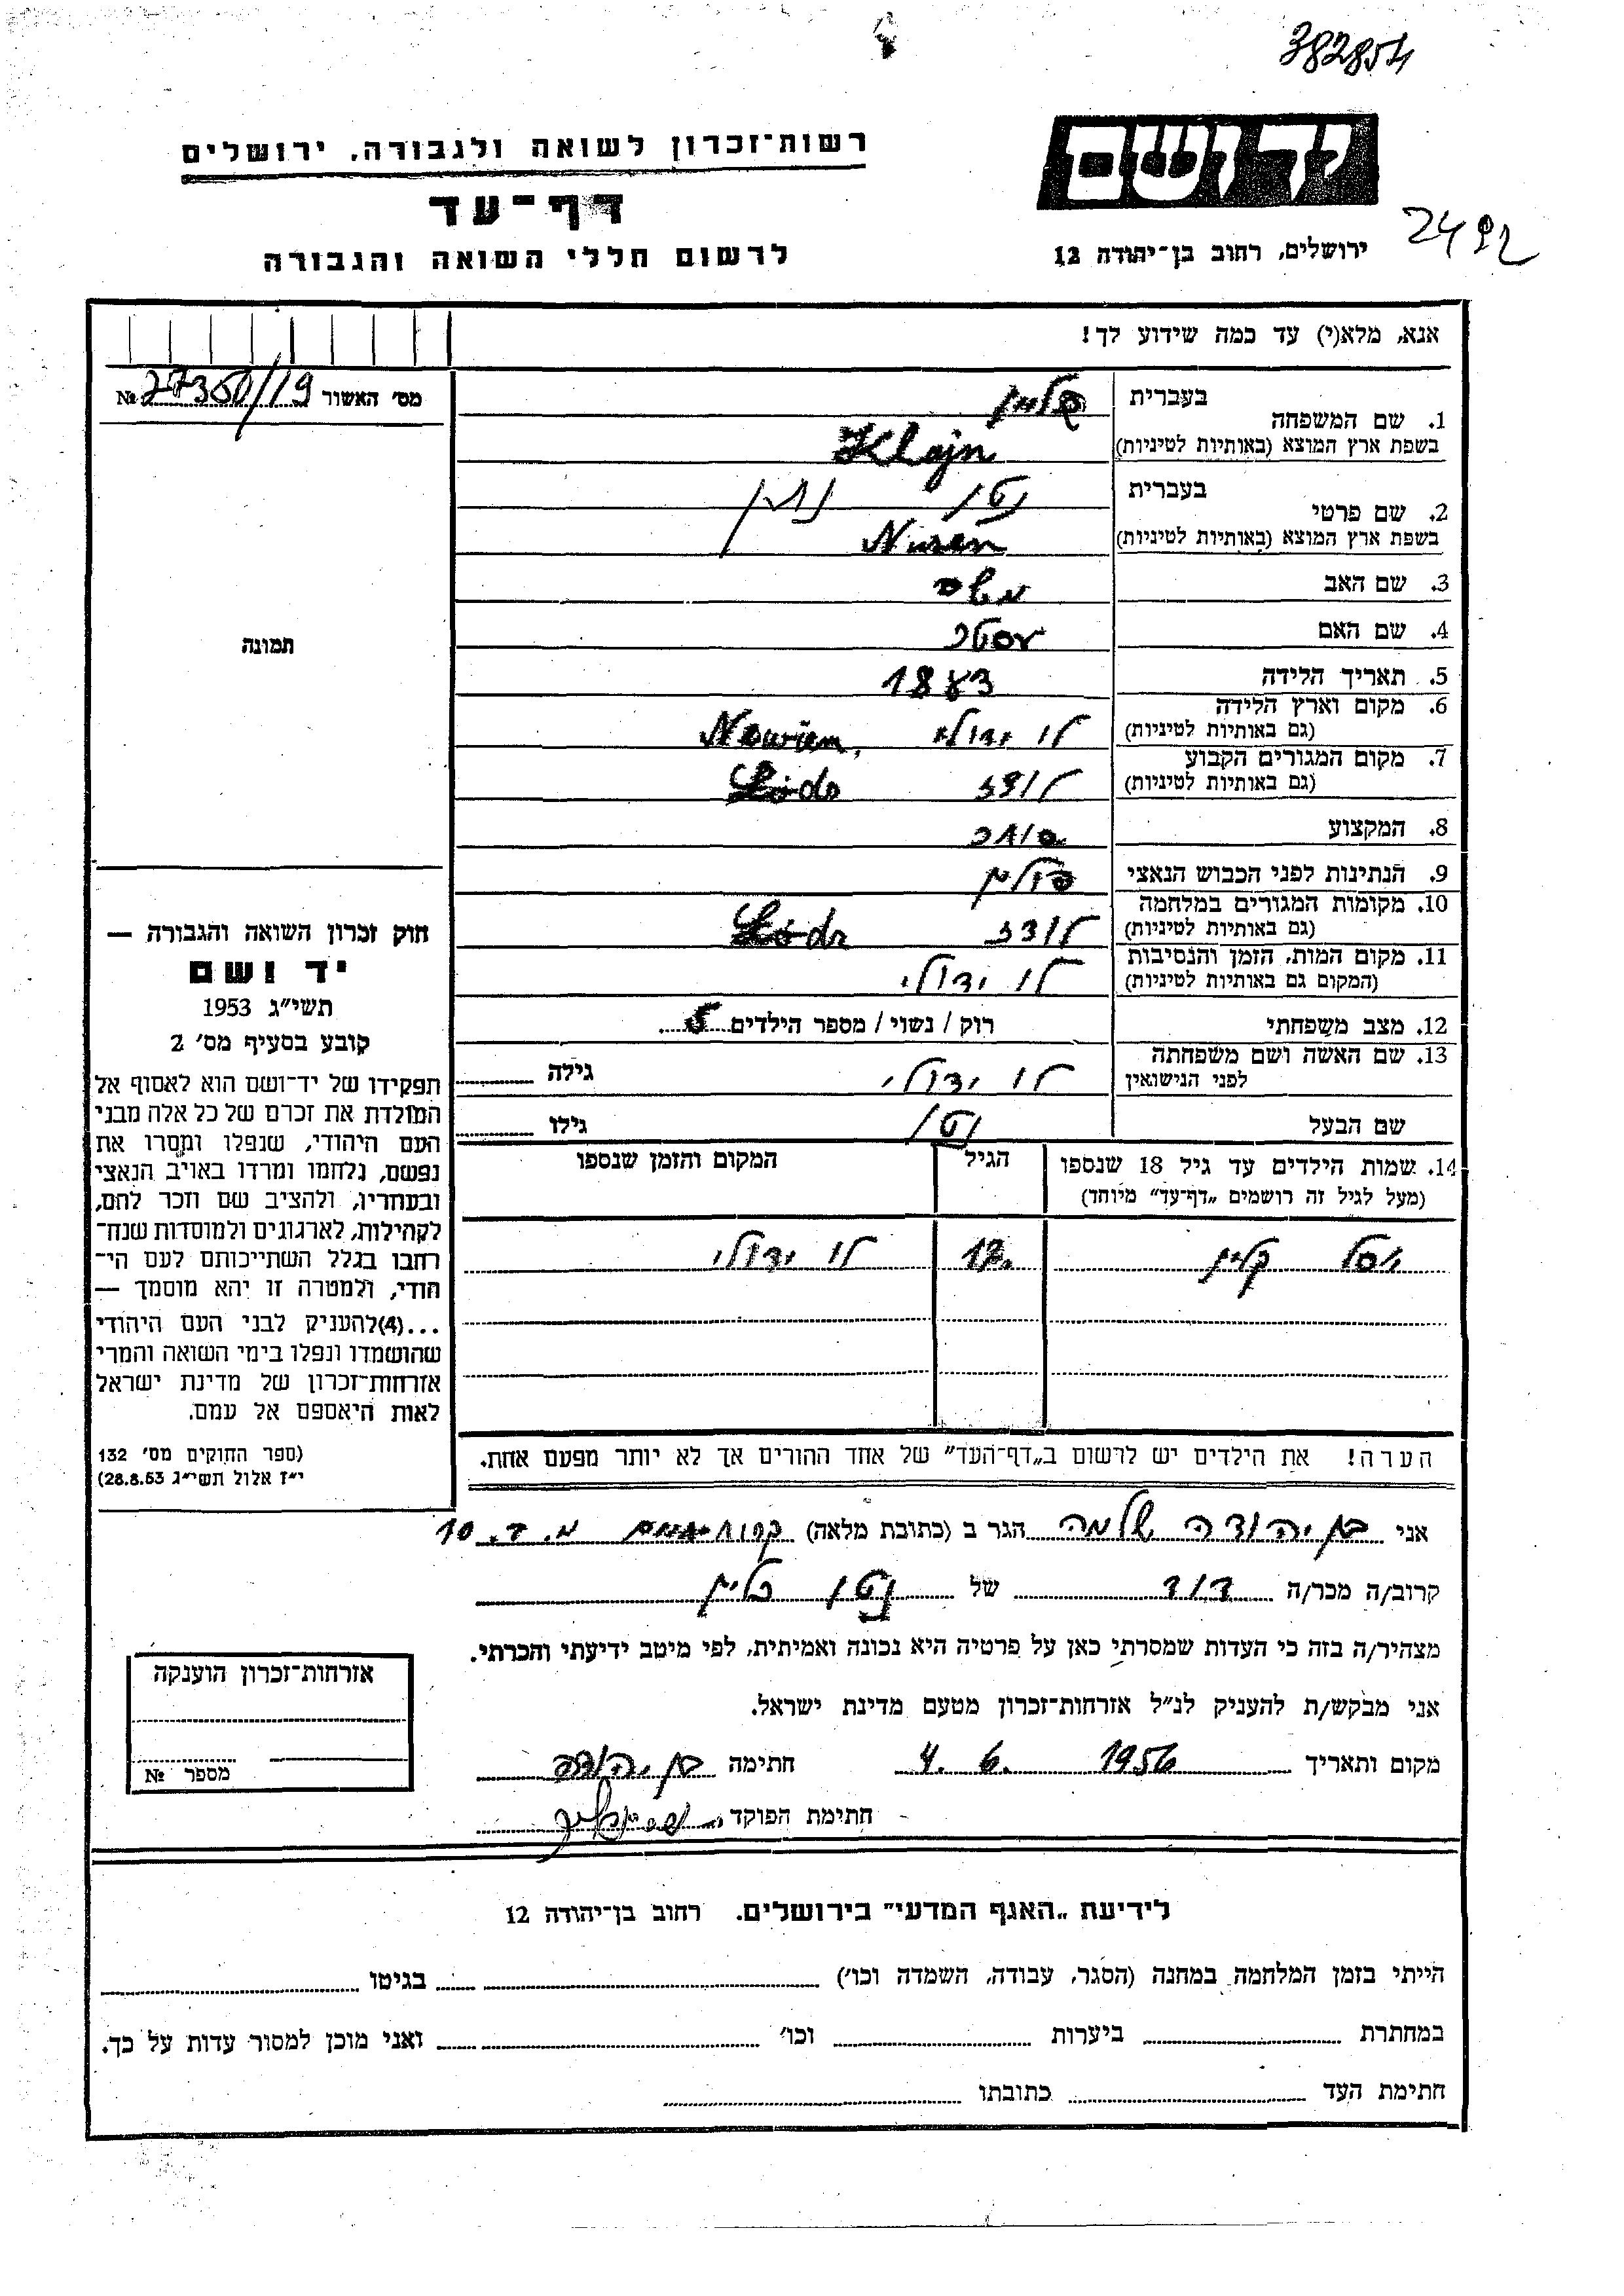 382854
רשות־זכרון לשואה ולגבורה, ירושלים
דף־עד
לרשום חללי השואה והגבורה
יד ושם
ירושלים, רחוב בן־יהודה 12
2492
אנא, מלא(י) עד כמה שידוע לך!
מס' האשור № 27350/19
1. שם המשפחה
בעברית קליין
בשפת ארץ המוצא (באותיות לטיניות) Klajn
2. שם פרטי
בעברית נטן נתן
בשפת ארץ המוצא (באותיות לטיניות) Nusen
3. שם האב משה
4. שם האם אסטר
5. תאריך הלידה 1883
6. מקום וארץ הלידה
(גם באותיות לטיניות) לו ידולי
7. מקום המגורים הקבוע
(גם באותיות לטיניות) לודז Łódz
8. המקצוע סוחר
9. הנתינות לפני הכבוש הנאצי פולין
10. מקומות המגורים במלחמה
(גם באותיות לטיניות) לודז Łódz
11. מקום המות, הזמן והנסיבות
(המקום גם באותיות לטיניות) לו ידולי
12. מצב משפחתי רוק / נשוי / מספר הילדים 5
13. שם האשה ושם משפחתה
לפני הנישואין לו ידולי גילה
שם הבעל נטן גילו
14. שמות הילדים עד גיל 18 שנספו
(מעל לגיל זה רושמים „דף־עד" מיוחד)
הגיל
המקום והזמן שנספו
קליין 12 לו ידולי
הערה! את הילדים יש לרשום ב„דף־העד" של אחד ההורים אך לא יותר מפעם אחת.
תמונה
חוק זכרון השואה והגבורה —
יד ושם
תשי״ג 1953
קובע בסעיף מס' 2
תפקידו של יד־ושם הוא לאסוף אל
המולדת את זכרם של כל אלה מבני
העם היהודי, שנפלו ומסרו את
נפשם, נלחמו ומרדו באויב הנאצי
ובעוזריו, ולהציב שם וזכר להם,
לקהילות, לארגונים ולמוסדות שנח־
רבו בגלל השתייכותם לעם הי־
הודי, ולמטרה זו יהא מוסמך —
...(4)להעניק לבני העם היהודי
שהושמדו ונפלו בימי השואה והמרי
אזרחות־זכרון של מדינת ישראל
לאות היאספם אל עמם.
(ספר החוקים מס' 132
י״ז אלול תשי״ג 28.8.53)
אני בן יהודה שלמה הגר ב (כתובת מלאה) מ. ד. 10
קרוב/ה מכר/ה דוד של נטן כליין
מצהיר/ה בזה כי העדות שמסרתי כאן על פרטיה היא נכונה ואמיתית, לפי מיטב ידיעתי והכרתי.
אני מבקש/ת להעניק לנ״ל אזרחות־זכרון מטעם מדינת ישראל.
מקום ותאריך 4. 6. 1956 חתימה בן יהודה
חתימת הפוקד
אזרחות־זכרון הוענקה
מספר №
לידיעת „האגף המדעי" בירושלים. רחוב בן־יהודה 12
הייתי בזמן המלחמה במחנה (הסגר, עבודה, השמדה וכו') בגיטו
במחתרת ביערות וכו' ואני מוכן למסור עדות על כך.
חתימת העד כתובתו